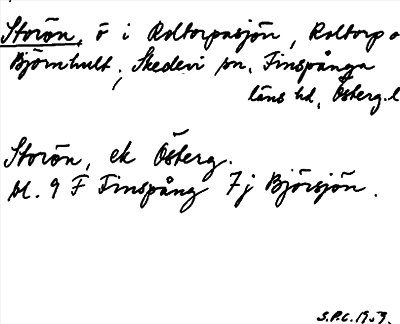 Storön, ö i Roltorpasjön, Roltorp o
Björnhult, Skedevi sn, Finspånga
läns hd, Österg. l
Storön, ek Österg.
bl. 9 F Finspång 7j Björsjön.
S.P.C. 1959.